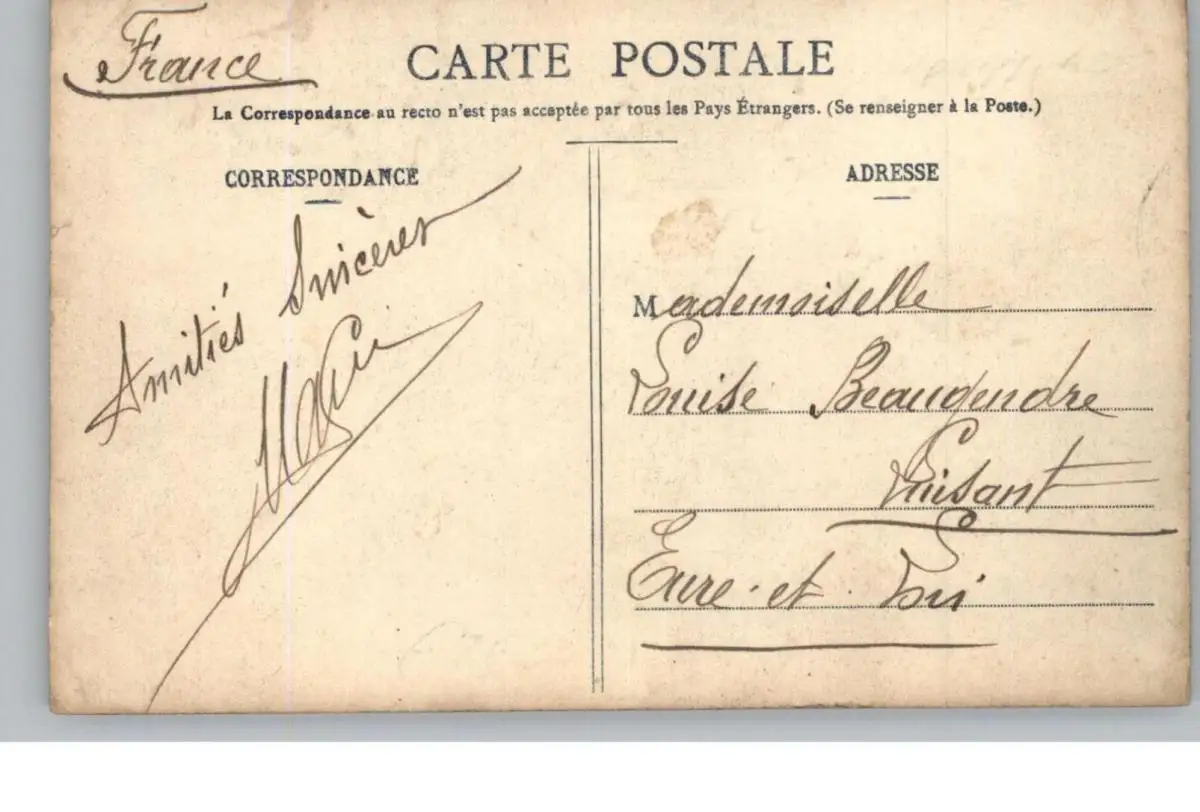 France
CARTE POSTALE
La Correspondance au recto n'est pas acceptée par tous les Pays Étrangers. (Se renseigner à la Poste.)
CORRESPONDANCE
Amitiés Sincères
ADRESSE
Mademoiselle
Louise Beaugendre
Luisant
Eure-et-Loir